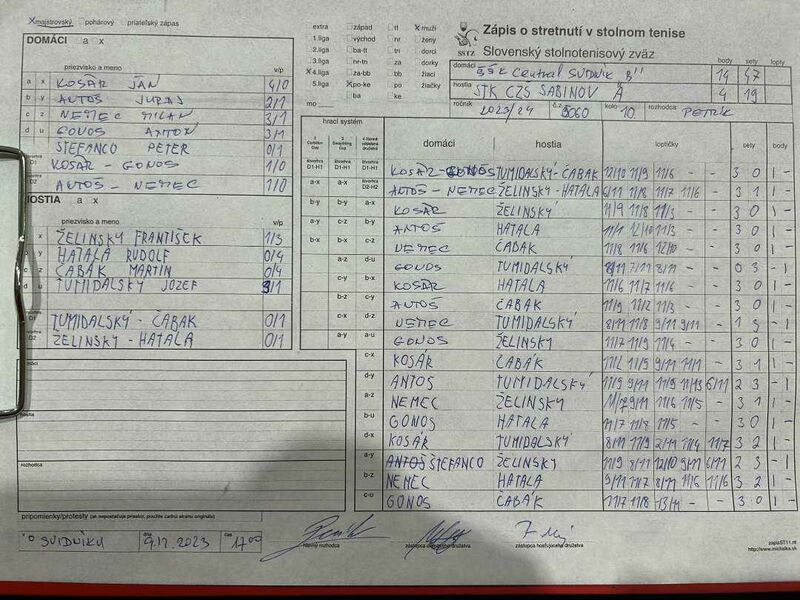 x majstrovský pohárový priateľský zápas
DOMÁCI a x
priezvisko a meno v/p
a x KOSÁR JÁN 4/0
b y ANTOŠ JURAJ 2/1
c z NEMEC MILAN 3/1
d u GONOS ANTON 3/1
ŠTEFANCO PETER 0/1
D1 KOSÁR - GONOS 1/0
D2 ANTOŠ - NEMEC 1/0
HOSTIA a x
priezvisko a meno v/p
x ŽELINSKÝ FRANTIŠEK 1/3
y HATALA RUDOLF 0/4
c z ČABÁK MARTIN 0/4
d u TUMIDALSKÝ JOZEF 3/1
D1 TUMIDALSKÝ - ČABAK 0/1
D2 ŽELINSKÝ - HATALA 0/1
domáci
hostia
rozhodca
pripomienky/protesty (ak nepostačuje priestor, použite zadnú stranu originálu)
SVIDNÍKU dňa 9.12.2023 čas 1700
extra západ tl x muži
1.liga východ nr ženy
2.liga ba-tt tn dorci
3.liga nr-tn za dorky
x 4.liga za-bb bb žiaci
5.liga x po-ke po žiačky
mo ba ke
SSTZ
Zápis o stretnutí v stolnom tenise
Slovenský stolnotenisový zväz
body sety lopty
domáci ŠŠK Central SVIDNÍK "B" 14 47
hostia STK CZS SABINOV A 4 19
ročník 2023/24 č. 5060 kolo 10 rozhodca PETRÍK
hrací systém
domáci hostia loptičky sety body
KOSÁR - GONOS TUMIDALSKÝ - ČABAK 12/10 11/9 11/6 - - 3 0 1 -
a-x b-x ANTOŠ - NEMEC ŽELINSKÝ - HATALA 6/11 11/8 11/7 11/6 - 3 1 1 -
b-y b-y a-x KOSÁR ŽELINSKÝ 11/9 11/8 11/3 - - 3 0 1 -
a-y c-z b-y ANTOŠ HATALA 11/1 12/10 11/3 - - 3 0 1 -
b-x b-x c-z NEMEC ČABAK 11/8 11/6 12/10 - - 3 0 1 -
a-z d-u GONOS TUMIDALSKÝ 8/11 7/11 8/11 - - 0 3 - 1
c-y b-x KOSÁR HATALA 11/6 11/7 11/6 - - 3 0 1 -
b-z c-y ANTOŠ ČABAK 11/9 11/2 11/3 - - 3 0 1 -
c-x d-z NEMEC TUMIDALSKÝ 8/11 11/8 9/11 9/11 - 1 3 - 1
a-y a-u GONOS ŽELINSKÝ 11/7 11/9 11/4 - - 3 0 1 -
c-x KOSÁR ČABAK 11/2 11/9 9/11 11/1 - 3 1 1 -
d-y ANTOŠ TUMIDALSKÝ 11/9 9/11 11/9 11/13 6/11 2 3 - 1
a-z NEMEC ŽELINSKÝ 11/7 9/11 11/6 11/5 - 3 1 1 -
b-u GONOS HATALA 11/7 11/8 11/5 - - 3 0 1 -
d-x KOSÁR TUMIDALSKÝ 8/11 11/9 2/11 11/4 11/7 3 2 1 -
a-y ANTOŠ ŠTEFANCO ŽELINSKÝ 11/9 8/11 12/10 9/11 6/11 2 3 - 1
b-z NEMEC HATALA 9/11 11/7 8/11 11/5 11/6 3 2 1 -
c-u GONOS ČABAK 11/7 11/8 13/11 - - 3 0 1 -
hlavný rozhodca zástupca domáceho družstva zástupca hosťujúceho družstva
zapisST11.rtf
http://www.michalka.sk